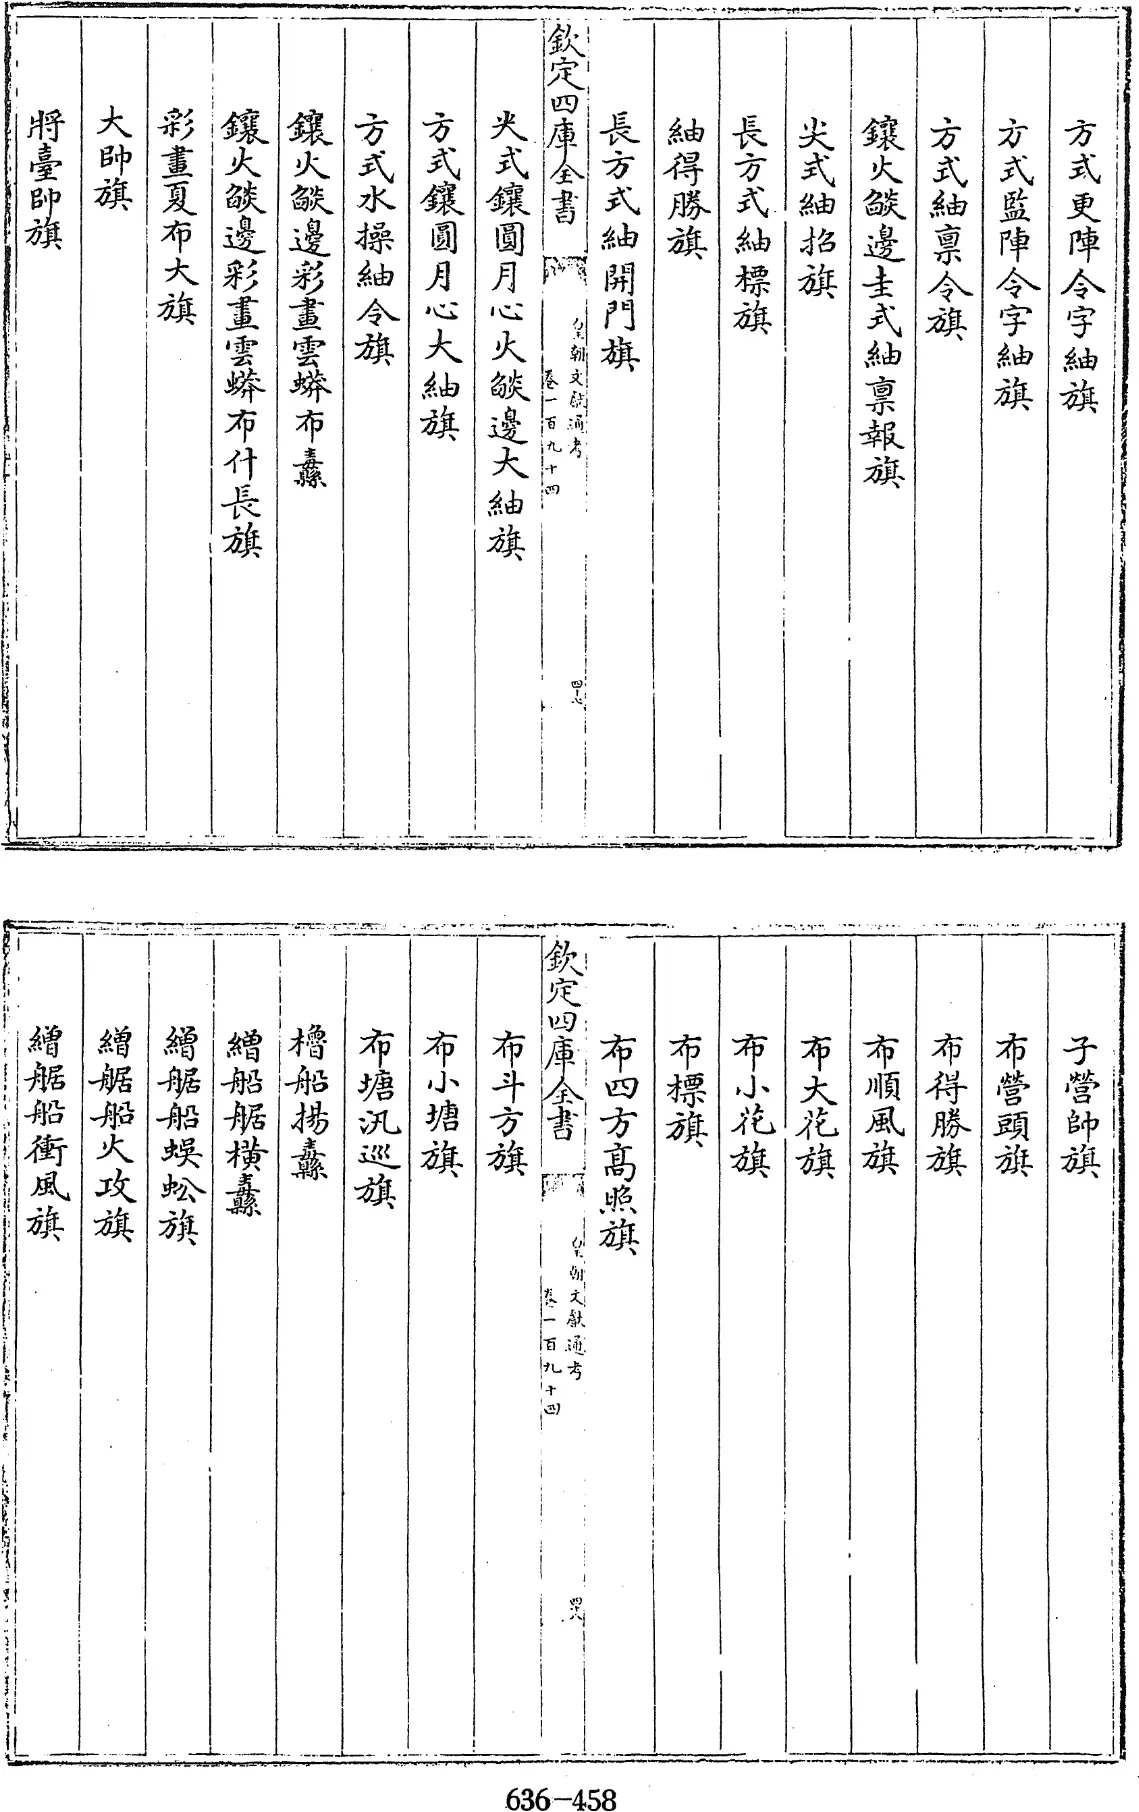 方式更陣令字紬旗
方式監陣令字紬旗
方式紬禀令旗
鑲火燄邊圭式紬禀報旗
尖式紬招旗
長方式紬標旗
紬得勝旗
長方式紬開門旗
欽定四庫全書
皇朝文獻通考
卷一百九十四
尖式鑲圓月心火燄邊大紬旗
方式鑲圓月心大紬旗
方式水操紬令旗
鑲火燄邊彩畫雲蟒布纛
鑲火燄邊彩畫雲蟒布什長旗
彩畫夏布大旗
大帥旗
將臺帥旗
子營帥旗
布營頭旗
布得勝旗
布順風旗
布大花旗
布小花旗
布標旗
布四方高照旗
欽定四庫全書
皇朝文獻通考
卷一百九十四
布斗方旗
布小塘旗
布塘汛巡旗
櫓船揚纛
繒船艍橫纛
繒艍船蜈蚣旗
繒艍船火攻旗
繒艍船衝風旗
636-458